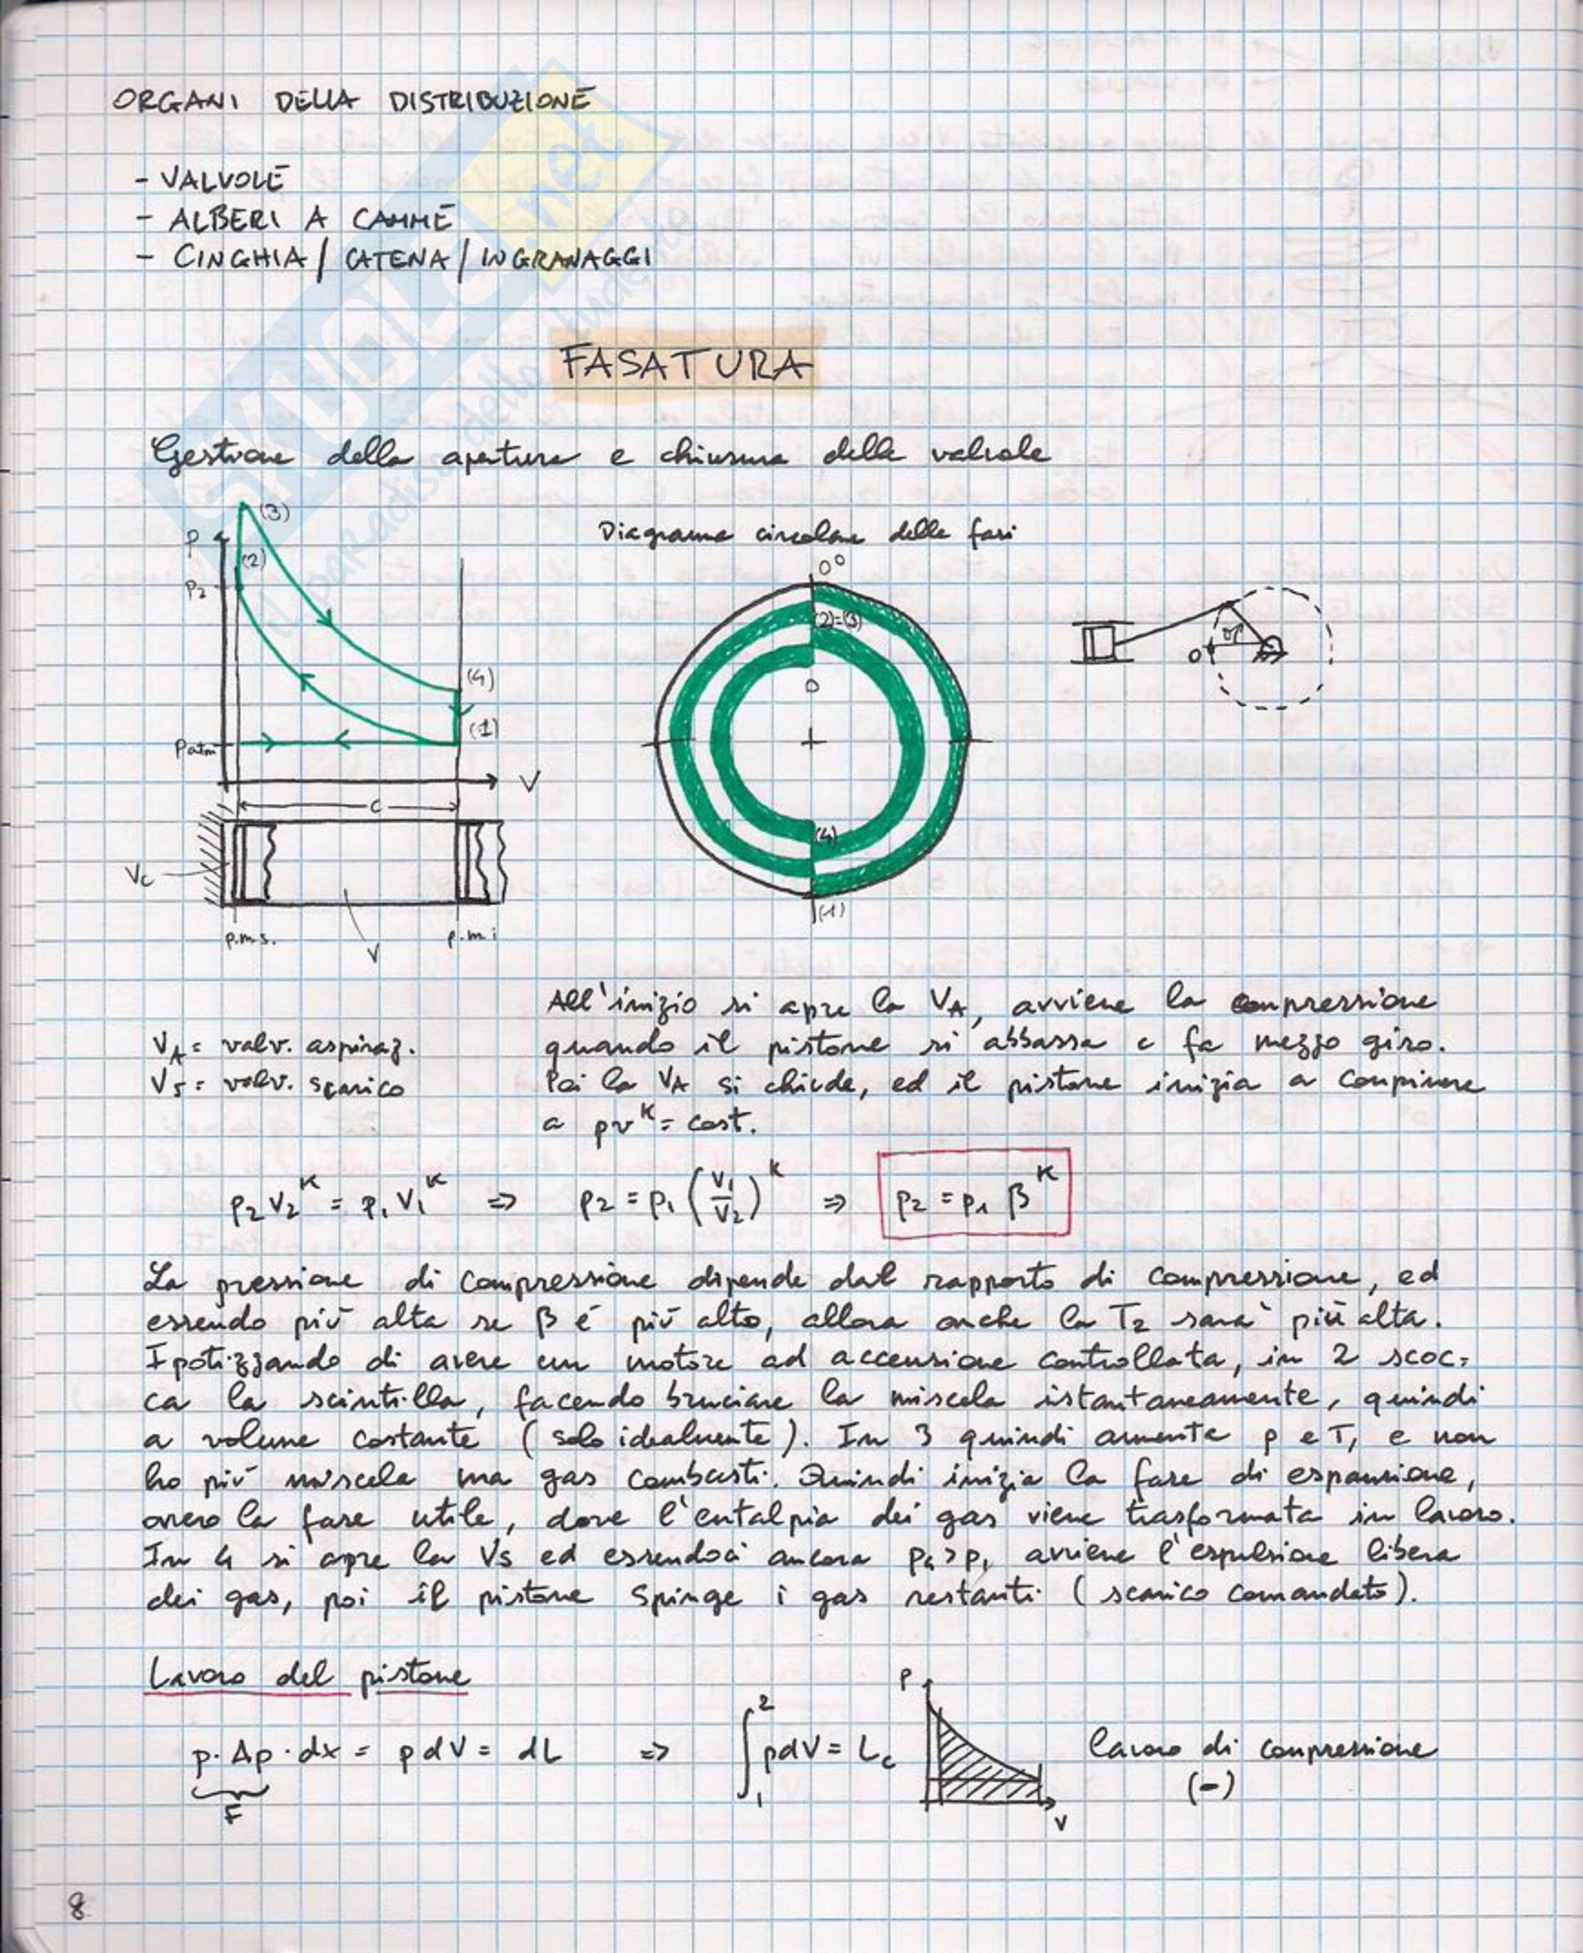 ORGANI DELLA DISTRIBUZIONE
- VALVOLE
- ALBERI A CAMME
- CINGHIA / CATENA / INGRANAGGI
SKUOLA.net
il paradiso dello studente
FASATURA
Gestione della apertura e chiusura delle valvole
Diagramma circolare delle fasi
p
(3)
(2)
P2
(4)
(1)
Patm
V
c
Vc
p.m.s.
p.m.i
V
0°
(2)=(3)
0
(4)
(1)
0
ϑ
All'inizio si apre la VA, avviene la compressione
VA = valv. aspiraz.
quando il pistone si abbassa e fa mezzo giro.
VS = valv. scarico
Poi la VA si chiude, ed il pistone inizia a compimere
a pv^K = cost.
p2 V2^K = p1 V1^K => p2 = p1 (V1/V2)^K => p2 = p1 β^K
La pressione di compressione dipende dal rapporto di compressione, ed
essendo più alta se β é più alto, allora anche la T2 sarà più alta.
Ipotizzando di avere un motore ad accensione controllata, in 2 scoc=
ca la scintilla, facendo bruciare la miscela istantaneamente, quindi
a volume costante (solo idealmente). In 3 quindi aumenta p e T, e non
ho più miscela ma gas combusti. Quindi inizia la fase di espansione,
ovvero la fase utile, dove l'entalpia dei gas viene trasformata in lavoro.
In 4 si apre la VS ed essendoci ancora p4>p1 avviene l'espulsione libera
dei gas, poi il pistone spinge i gas restanti (scarico comandato).
Lavoro del pistone
p · Ap · dx = p dV = dL => ∫₁² p dV = Lc
F
P
V
lavoro di compressione
(-)
8